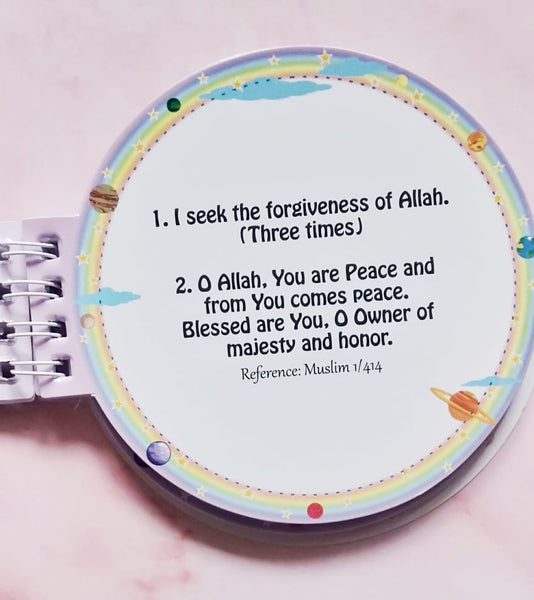 1. I seek the forgiveness of Allah.
(Three times)
2. O Allah, You are Peace and
from You comes peace.
Blessed are You, O Owner of
majesty and honor.
Reference: Muslim 1/414